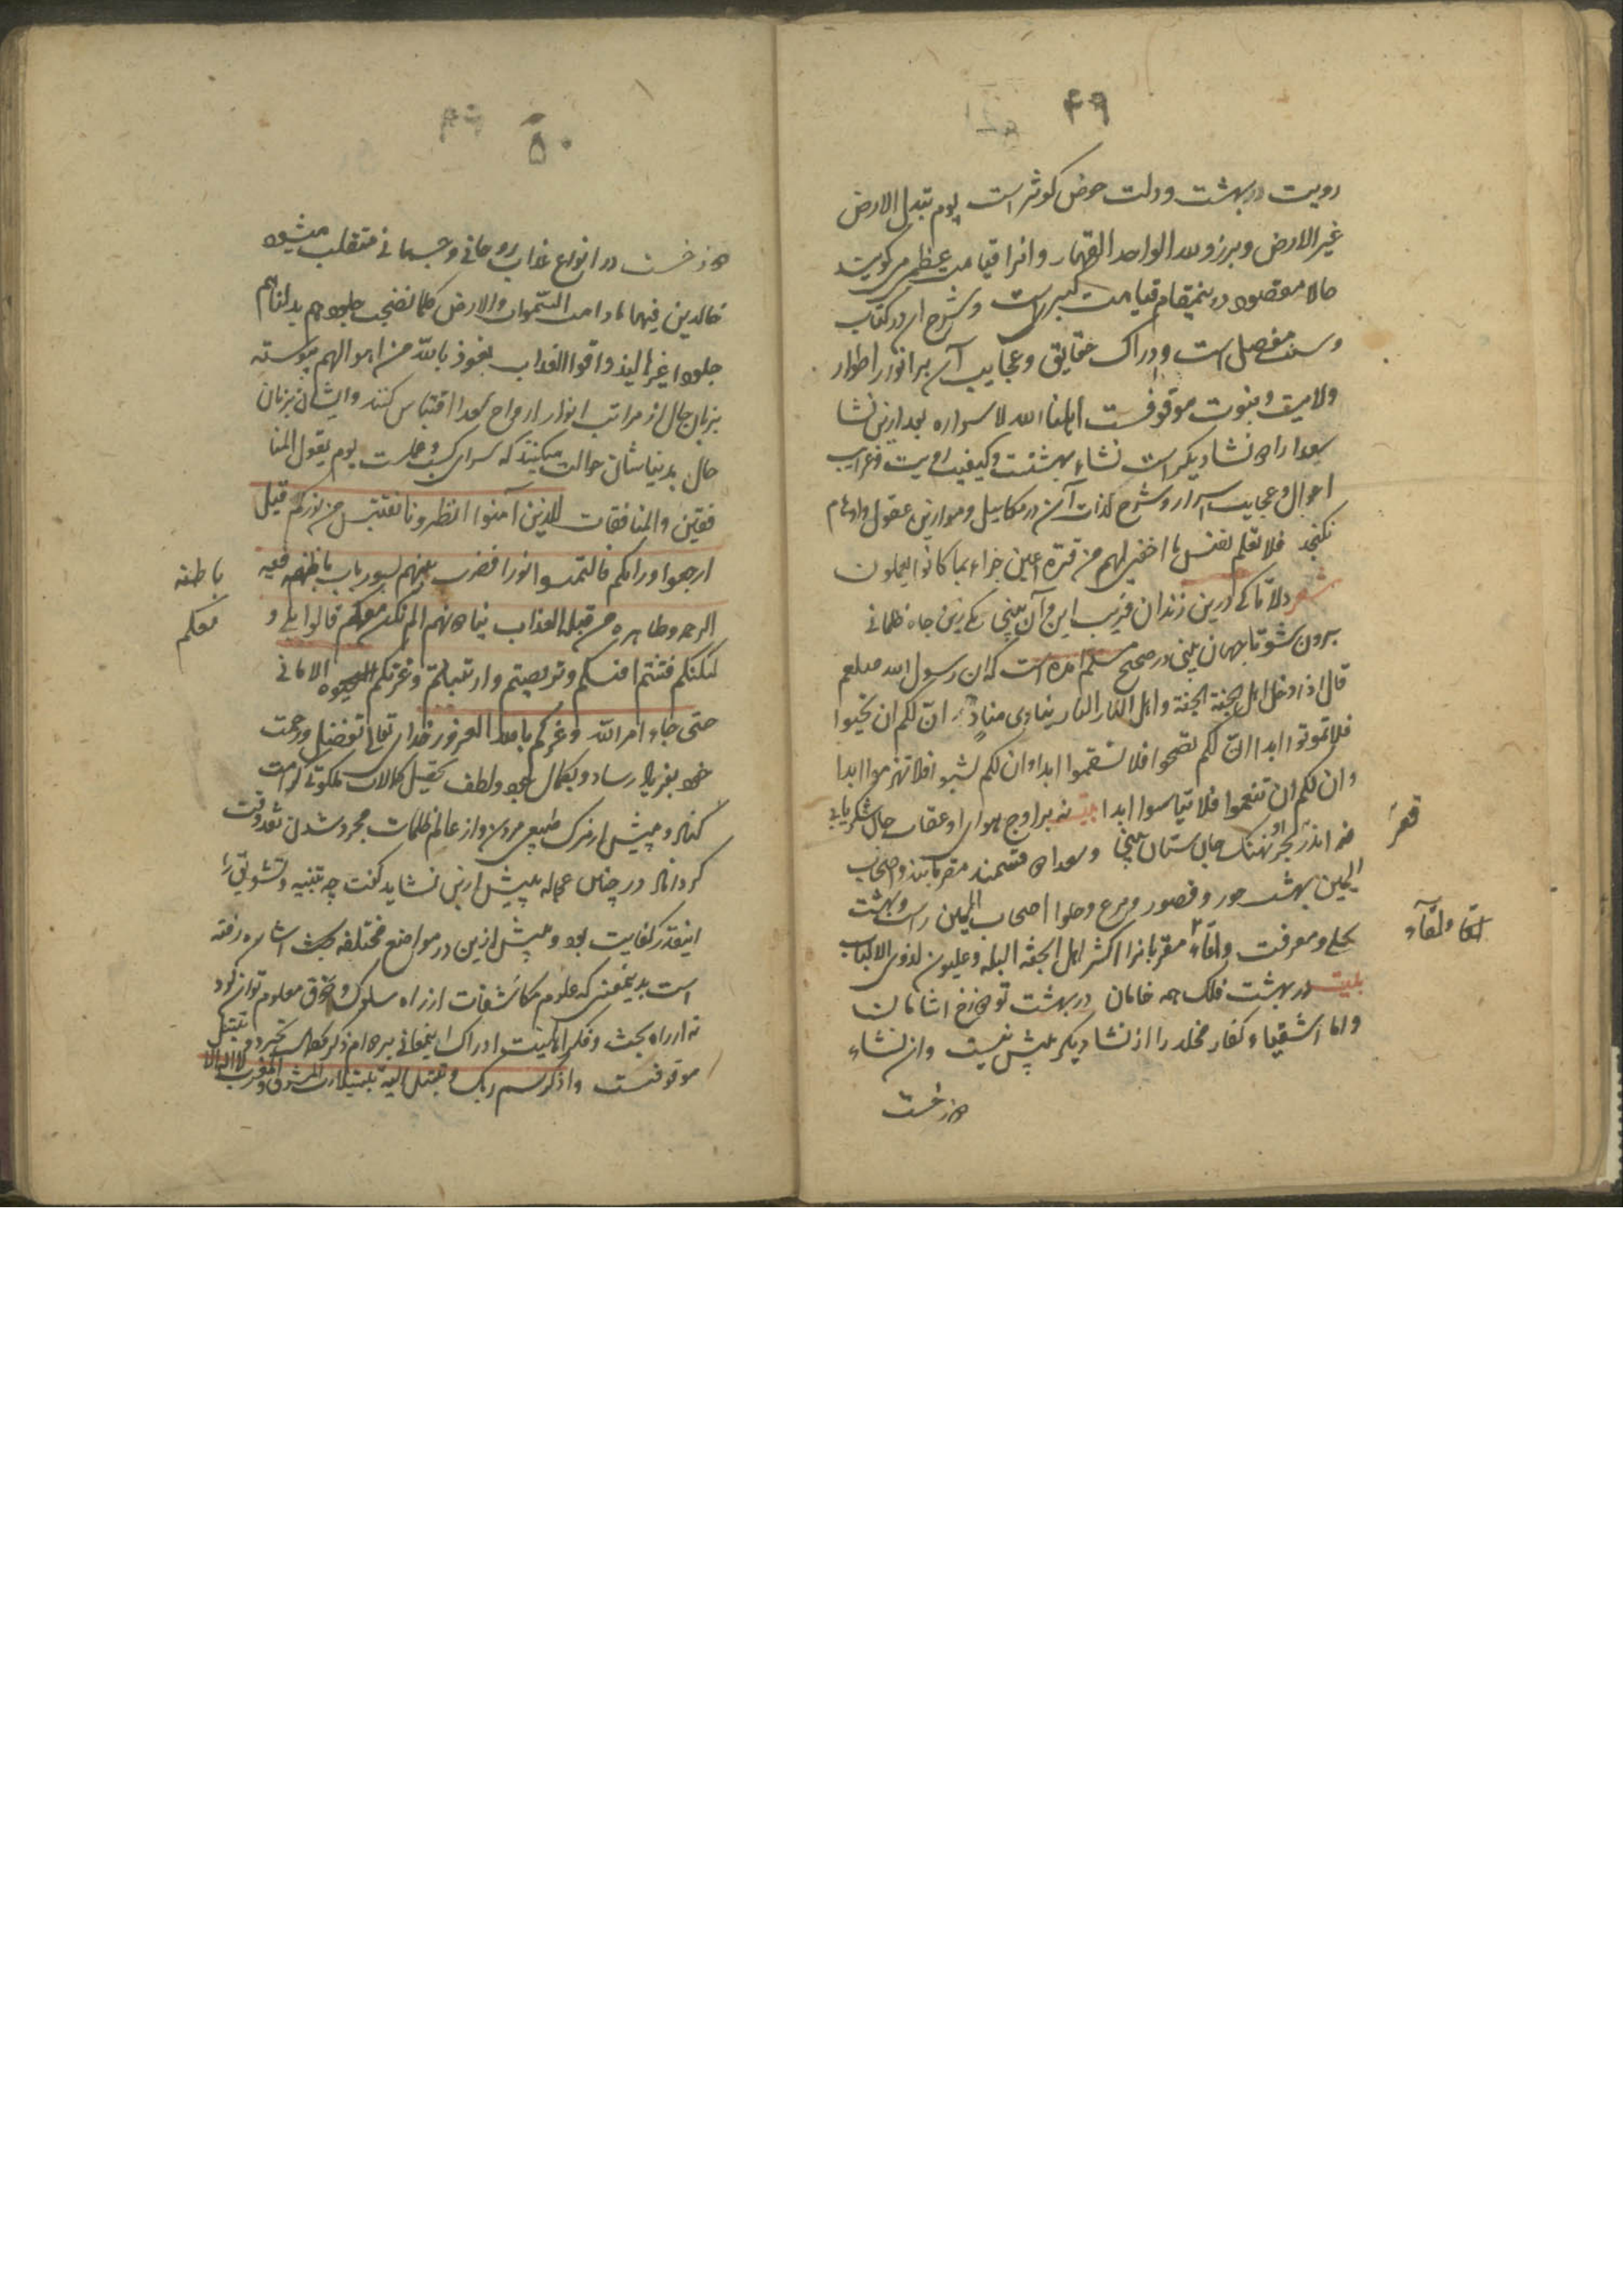 ۴۹
رویت در بهشت و دلت حوض کوثر است یوم تبدل الارض
غیر الارض و برزوا لله الواحد القهار و انرا قیامت عظمی گویند
حالا مقصود درینمقام قیامت کبری است و شرح ان در کتاب
و سنت مفصل است و ادراک حقایق و عجایب آن بر انوار اطوار
ولایت و نبوت موقوفست اطلعنا الله لاسراره بعد ازین نشا
سعدا را نشا دیگر است نشاء بهشتت و کیفیت رویت و غرایب
احوال و عجایب اسرار و شرح لذات آن در مکاییل و موازین عقول و اوهام
نگنجد فلا تعلم نفس ما اخفی لهم من قرة اعین جزاء بما کانوا یعملون
شعر دلا تا کی درین زندان فریب این و آن بینی یکی زین چاه ظلمانی
برون شو تا جهان بینی در صحیح مسلم آمده است که ان رسول الله صلعم
قال اذا دخل اهل الجنة الجنة و اهل النار النار ینادی مناد ان لکم ان تحیوا
فلا تموتوا ابدا ان لکم تصحوا فلا تسقموا ابدا و ان لکم تشبوا فلا تهرموا ابدا
و ان لکم ان تنعموا فلا تباسوا ابدا بیت نه بر اوج هوای او عقاب جان شکر یابی
نه اندر بحر او نهنگ جان ستان بینی و سعدا قسمند مقربانند و اصحاب
الیمین بهشت حور و قصور و مرغ و حلوا اصحاب الیمین راست و بهشت
تجلی و معرفت و لقاء مقربانرا اکثر اهل الجنة البله و علیون لذوی الالباب
بیت در بهشت فلک همه خامان در بهشت تو دوزخ اشامان
و اما اشقیاء و کفار مخلد را از نشا دیگر پیش نیست و ان نشاء
دوزخست
قعر
لقاء
۵۰
دوزخست در انواع عذاب روحانی و جسمانی متقلب میشود
خالدین فیها ما دامت السموات و الارض کلما نضجت جلودهم بدلناهم
جلودا غیرها لیذوقوا العذاب نعوذ بالله من احوالهم پیوسته
بزبان حال از مراتب انوار ارواح سعدا اقتباس کنند و ایشان بزبان
حال بدنیاشان حوالت میکنند که سرای کسب و عملست یوم یقول المنا
فقین و المنافقات للذین آمنوا انظرونا نقتبس من نورکم قیل
ارجعوا وراکم فالتمسوا نورا فضرب بینهم بسور باب باطنه فیه
الرحمه و ظاهره من قبله العذاب ینادونهم الم نکن معکم قالوا بلی و
لکنکم فتنتم انفسکم و تربصتم و ارتبتم و غرتکم الامانی
حتی جاء امر الله و غرکم بالله الغرور خدای تعالی بفضل و رحمت
خود بفریاد رساد و بکمال جود و لطف تحصیل کمالات ملکوتی کرامت
کناد و پیش از مرک طبیعی مردن و از عالم ظلمات مجرد شدن نقد وقت
گرداناد در چنین عجاله بیش ازین نشاید گفت چه تنبیه و تشویق را
اینقدر کفایت بود و پیش ازین در مواضع مختلفه بحث اشاره رفته
است بدینمعنی که علوم مکاشفات از راه سلوک و ذوق معلوم توان نمود
نه از راه بحث و فکر ادراک اینمعانی
موقوفست و اذکر اسم ربک و تبتل الیه تبتیلا رب المشرق و المغرب لا اله الا
باطنه
معکم